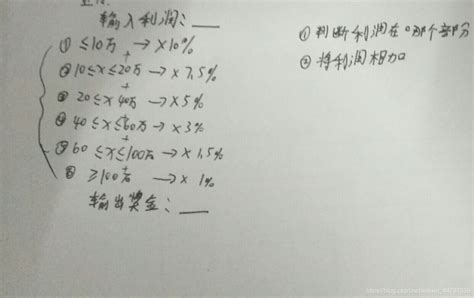 输入利润：__
① ≤10万 → ×10%
+
② 10≤x≤20万 → ×7.5%
+
③ 20≤x 40万 → ×5%
+
④ 40≤x≤60万 → ×3%
+
⑤ 60≤x≤100万 → ×1.5%
+
⑥ ≥100万 → ×1%
输出奖金：__
① 判断利润在哪个部分
② 将利润相加